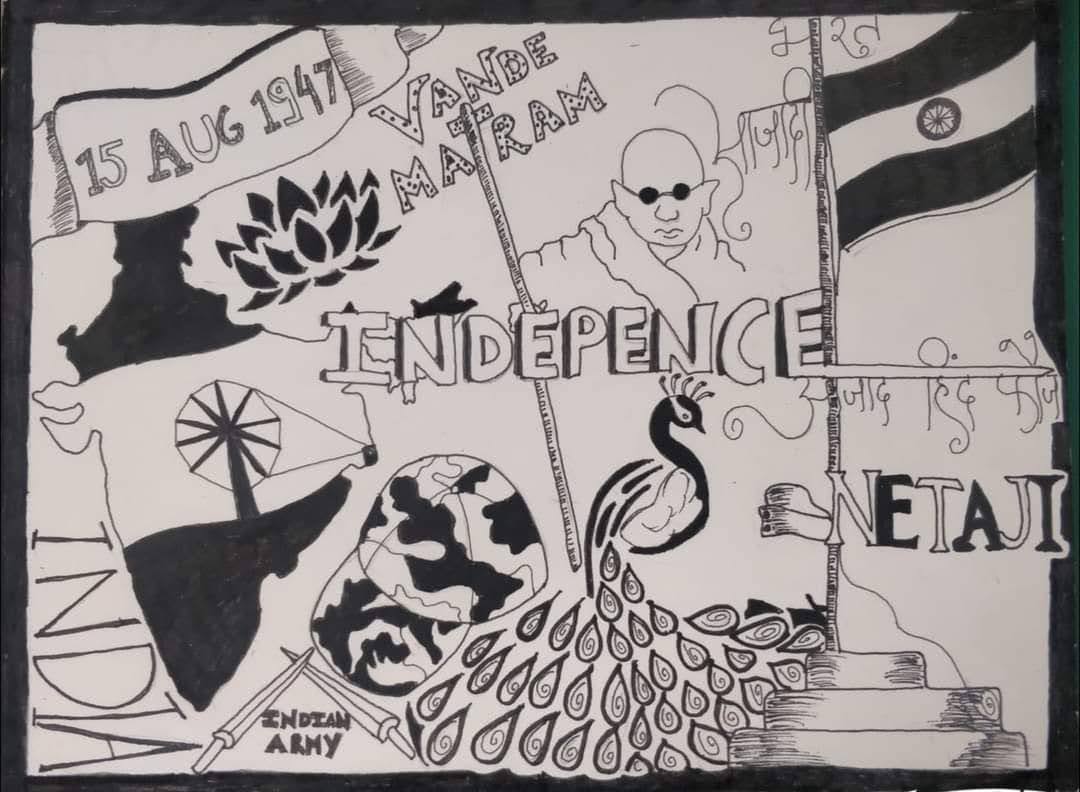 15 AUG 1947
VANDE
MATRAM
भारत
INDEPENCE
आजाद हिंद फौज
NETAJI
INDIA
INDIAN
ARMY